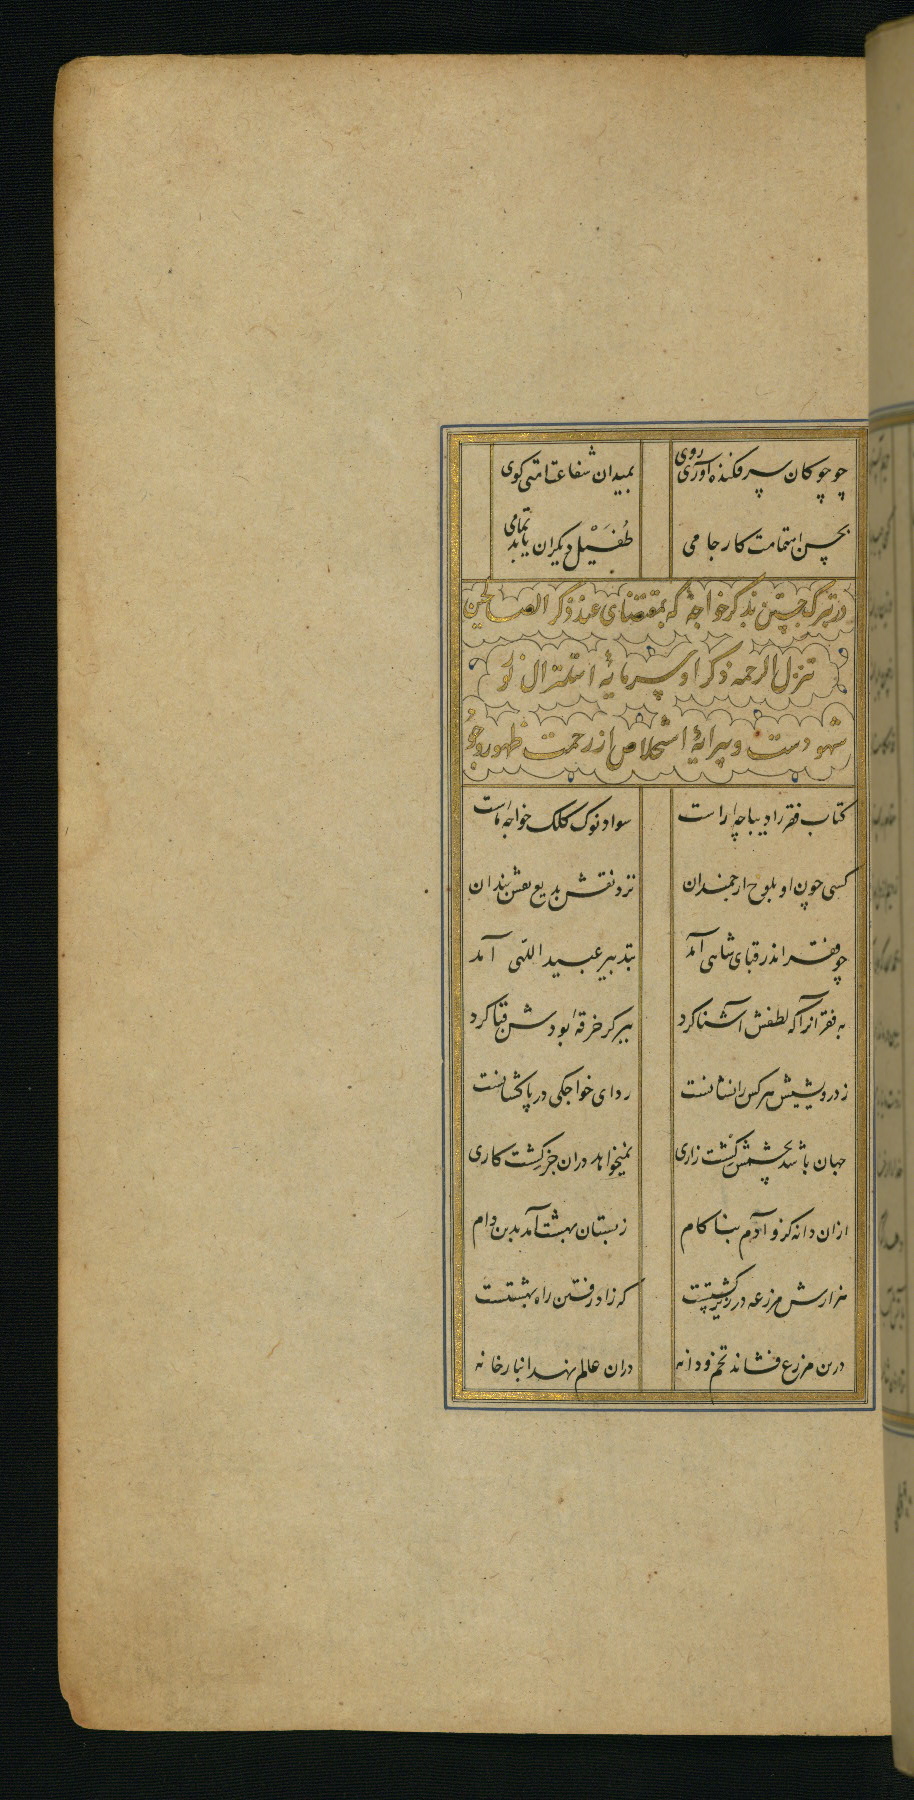 چو چوکان سرفکنده آوری روی بمیدان شفاعت امتی کوی
بحسن اهتمامت کار جامی طُفَیْل دیکران یابد تمامی
در تبرک جستن بذکر خواجه که بمقتضای عند ذکر الصالحین
تنزل الرحمه ذکر او سرمایهٔ استنزال نور
شهودست و پیرایهٔ استخلاص از زحمت ظهور وجود
کتاب فقر را دیباچه راست سواد نوک کلک خواجه ماست
کسی چون او بلوح ارجمندان نزد نقش بدیع نقش بندان
چو فقر اندر قبای شاهی آمد بتدبیر عبید اللهی آمد
به فقر آنرا که لطفش آشنا کرد ببر کر خرقهٔ بودش قبا کرد
ز درویشیش هر کس را نشانست ردای خواجکی در پاکشانست
جهان باشد بچشمش کشت زاری نمیخواهد دران جز کشت کاری
ازان دانه کزو آدم بناکام ز بستان بهشت آمد بدین دام
هزارش مزرعه در زیر کشتست که زاد رفتن راه بهشتست
درین مزرع فشاند تخم و دانه دران عالم نهد انبارخانه